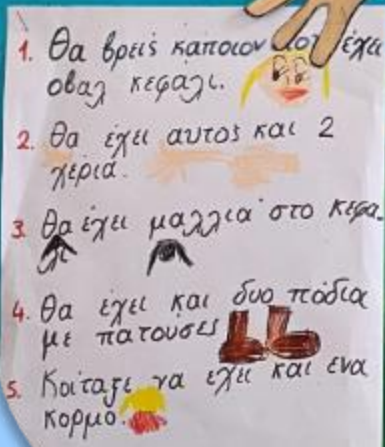 1. Θα βρεις καποιον που έχει
οβαλ κεφαλι.
2. Θα έχει αυτος και 2
χέρια.
3. Θα έχει μαλλια στο κεφα-
λι
4. Θα έχει και δυο πόδια
με πατούσες
5. Κοιταξε να εχει και ενα
κορμο.